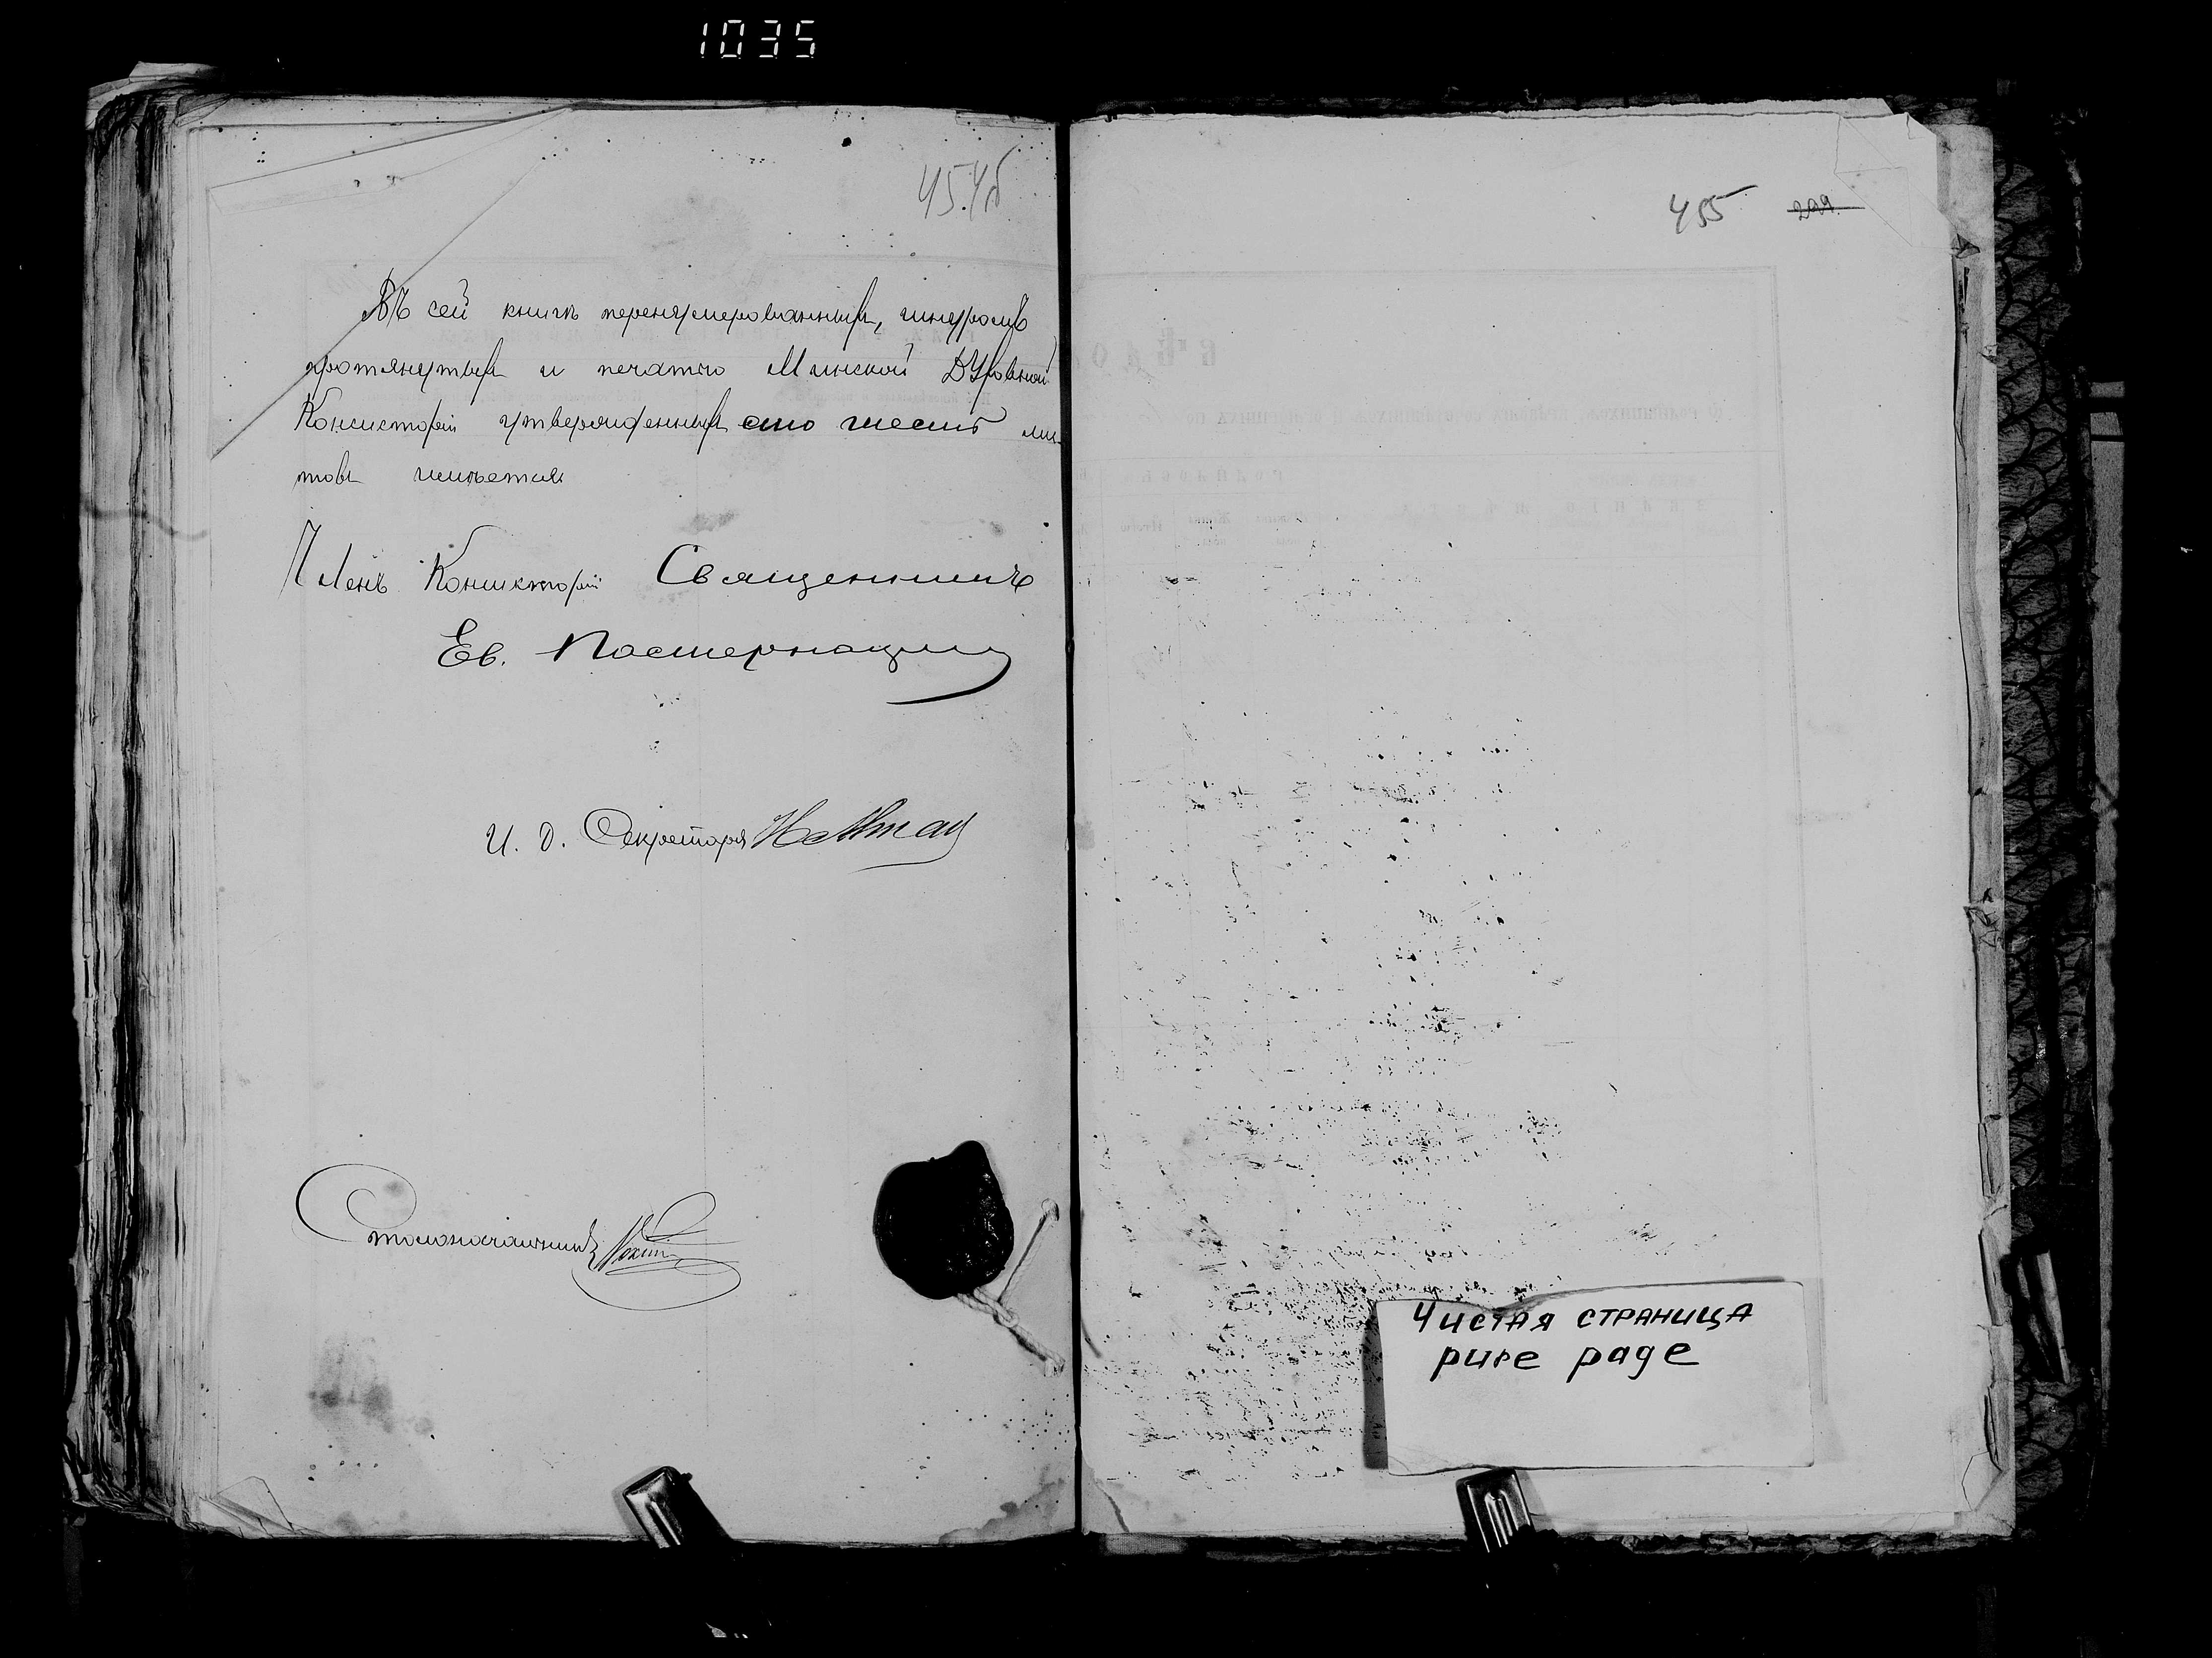 1035
454б
Въ сей книгѣ перенумерованныхъ, шнуромъ
протянутыхъ и печатью Минской Духовной
Консисторіи утвержденныхъ сто шесть лис-
товъ имѣется
Членъ Консисторіи Священникъ
Ев. Пастернацкій
И. д. Секретаря
Столоначальникъ
455 209
Чистая страница
pure page